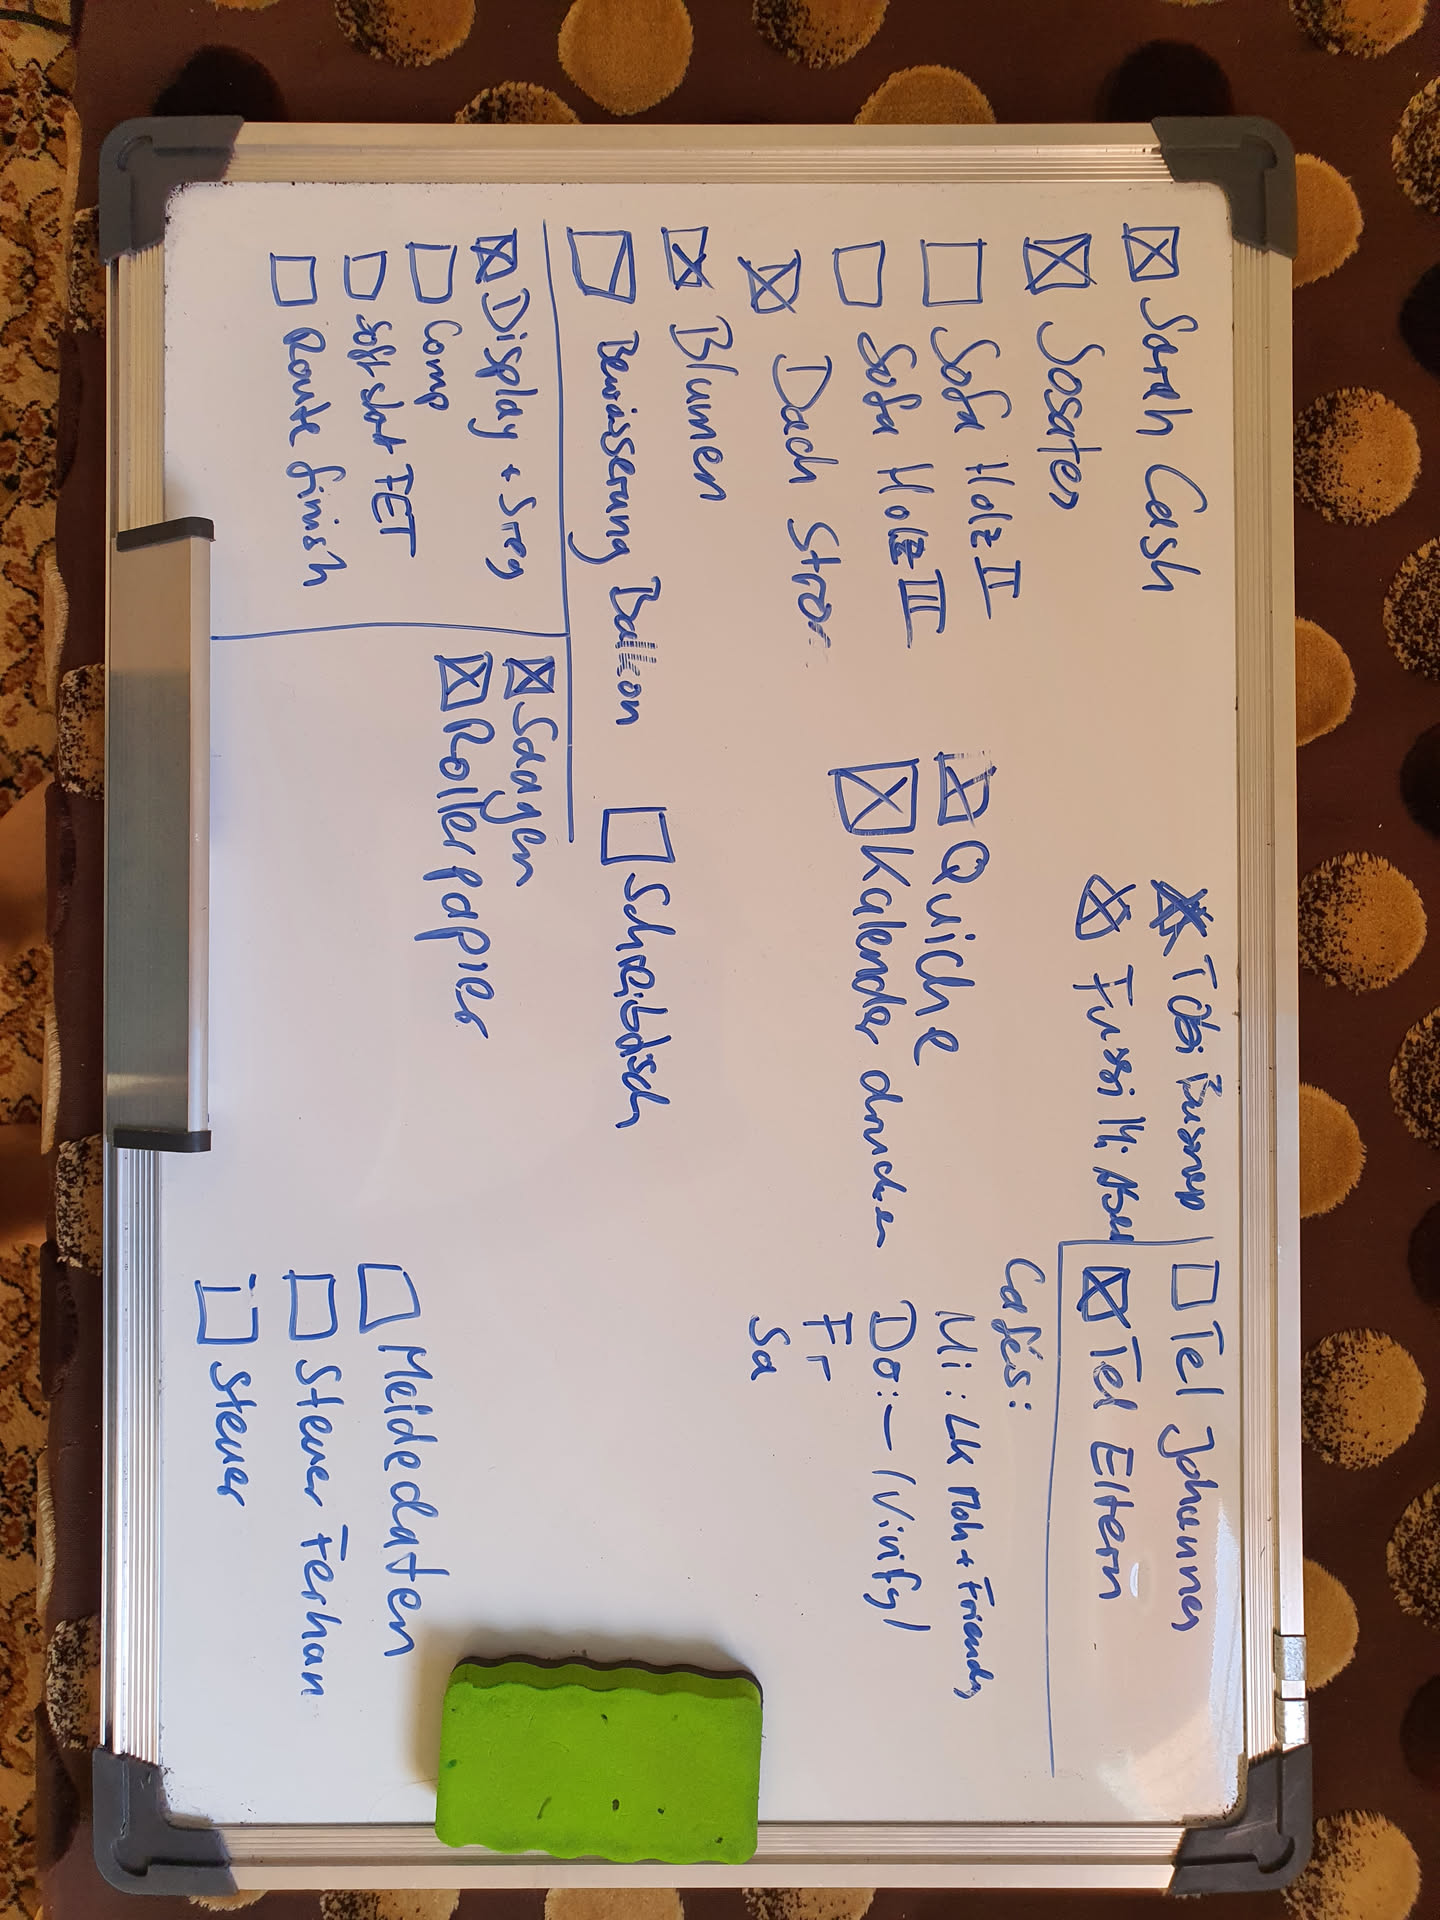 Sarah Cash
Sosaten
Sofa Holz II
Sofa Holz III
Dach Strom
Blumen
Bewässerung Balkon
Display + Steg
Comp
Soft start FET
Route finish
Tobi
Fussi Mi
Quiche
Kalender drucken
Schreibtisch
Sägen
Rollerpapier
Tel Johannes
Tel Eltern
Cafés:
Mi: LK Moh + Friends
Do: – / Vinifyl
Fr
Sa
Meldedaten
Steuer Ferhan
Steuer